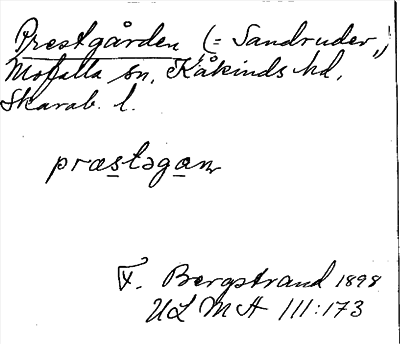 Prestgården (= Sandruder,)
Mofalla sn, Kåkinds hd,
Skarab. l.
præstəgan
F. Bergstrand 1898
ULMA 111:173